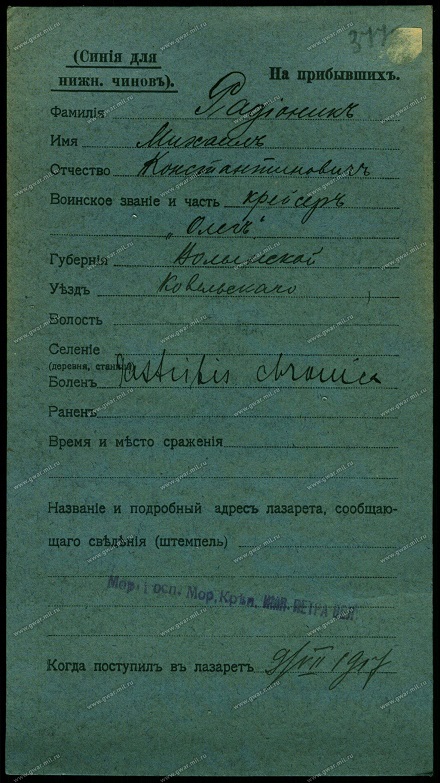 377
(Синія для
нижн. чиновъ).
На прибывшихъ.
Фамилія Радіоникъ
Имя Михаилъ
Отчество Константиновичъ
Воинское званіе и часть крейсеръ
„Олегъ"
Губернія Волынской
Уѣздъ Ковельскаго
Волость
Селеніе
(деревня, станица)
Боленъ Gastritis chronica
Раненъ
Время и мѣсто сраженія
Названіе и подробный адресъ лазарета, сообщаю-
щаго свѣдѣнія (штемпель)
Мор. Госп. Мор. Крѣп. ИМП. ПЕТРА ВЕЛ
Когда поступилъ въ лазаретъ 1917
www.gwar.mil.ru